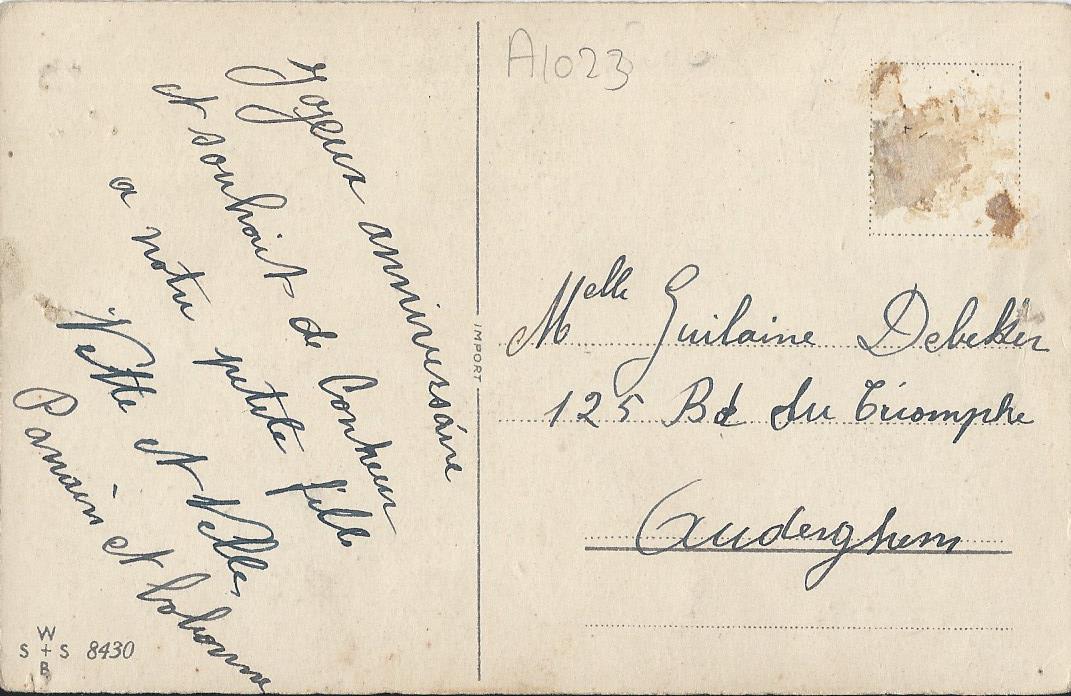 A1023
Joyeux anniversaire
et souhait de bonheur
a notre petite fille
Nette et Nelle,
Parrain et bobonne
IMPORT
Melle Guilaine Debekker
125 Bd du Triomphe
Auderghem
W
S + S 8430
B